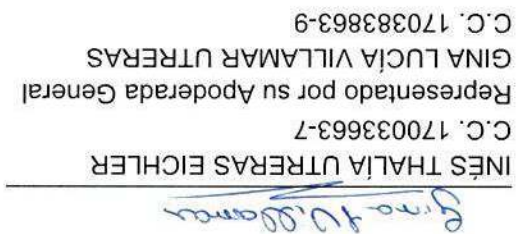 Gina Villamar
INÉS THALÍA UTRERAS EICHLER
C.C. 170033663-7
Representado por su Apoderada General
GINA LUCÍA VILLAMAR UTRERAS
C.C. 170383863-9